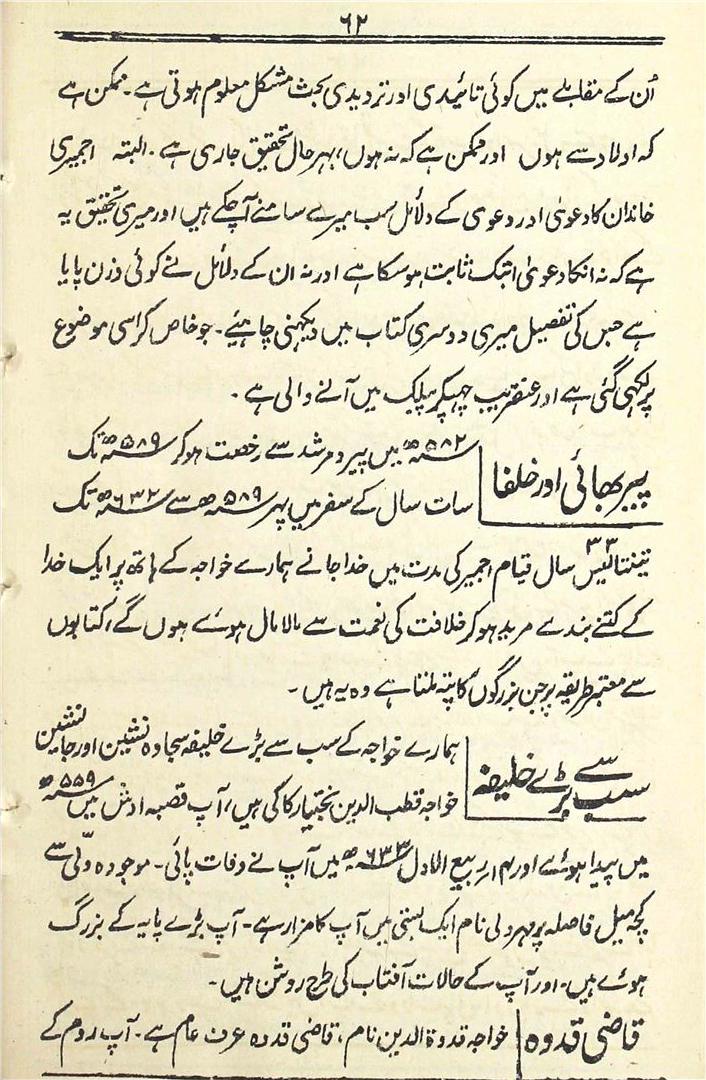 ۶۲
اُن کے مقابلے میں کوئی تائیدی اور تردیدی بحث مشکل معلوم ہوتی ہے۔ ممکن ہے
کہ اولاد سے ہوں اور ممکن ہے کہ نہ ہوں، بہرحال تحقیق جاری ہے۔ البتہ اجمیری
خاندان کا دعویٰ اور دعوی کے دلائل سب میرے سامنے آچکے ہیں اور میری تحقیق یہ
ہے کہ نہ انکا دعویٰ ابتک ثابت ہوسکا ہے اور نہ ان کے دلائل نے کوئی وزن پایا
ہے جس کی تفصیل میری دوسری کتاب میں دیکہنی چاہئیے۔ جو خاص کر اسی موضوع
پر لکہی گئی ہے اور عنقریب چہپکر پبلک میں آنے والی ہے۔
پیر بھائی اور خلفا
۵۸۲ھ میں پیر و مرشد سے رخصت ہوکر ۵۸۹ھ تک
سات سال کے سفر میں پہر ۵۸۹ھ سے ۶۳۲ھ تک
تینتالیس ۳۳ سال قیام اجمیر کی مدت میں خدا جانے ہمارے خواجہ کے ہاتھ پر ایک خدا
کے کتنے بندے مرید ہوکر خلافت کی نعمت سے مالا مال ہوئے ہوں گے، کتابوں
سے معتبر طریقہ پر جن بزرگوں کا پتہ ملتا ہے وہ یہ ہیں۔
سب سے بڑے خلیفہ
ہمارے خواجہ کے سب سے بڑے خلیفہ سجادہ نشین اور جانشین
خواجہ قطب الدین بختیار کاکی ہیں، آپ قصبہ اوش میں ۵۵۹ھ
میں پیدا ہوئے اور ۱۴ ربیع الاول ۶۳۳ھ میں آپ نے وفات پائی۔ موجودہ دلّی سے
کچہ میل فاصلہ پر مہرولی نام ایک بستی میں آپ کا مزار ہے۔ آپ بڑے پایہ کے بزرگ
ہوئے ہیں۔ اور آپ کے حالات آفتاب کی طرح روشن ہیں۔
قاضی قدوہ
خواجہ قدوۃ الدین نام، قاضی قدوہ عرف عام ہے۔ آپ روم کے